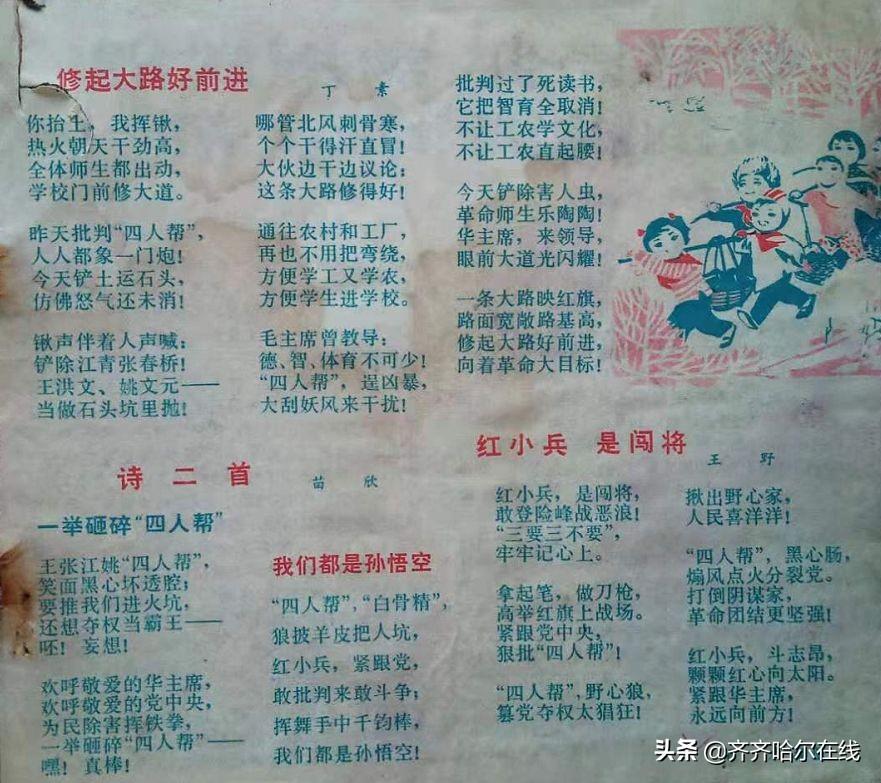 修起大路好前进
丁 素
你抬土，我挥锹，
热火朝天干劲高，
全体师生都出动，
学校门前修大道。
昨天批判“四人帮”，
人人都象一门炮！
今天铲土运石头，
仿佛怒气还未消！
锹声伴着人声喊：
铲除江青张春桥！
王洪文、姚文元——
当做石头坑里抛！
哪管北风刺骨寒，
个个干得汗直冒！
大伙边干边议论：
这条大路修得好！
通往农村和工厂，
再也不用把弯绕，
方便学工又学农，
方便学生进学校。
毛主席曾教导：
德、智、体育不可少！
“四人帮”，逞凶暴，
大刮妖风来干扰！
批判过了死读书，
它把智育全取消！
不让工农学文化，
不让工农直起腰！
今天铲除害人虫，
革命师生乐陶陶！
华主席，来领导，
眼前大道光闪耀！
一条大路映红旗，
路面宽敞路基高，
修起大路好前进，
向着革命大目标！
诗二首
苗 欣
一举砸碎“四人帮”
王张江姚“四人帮”，
笑面黑心坏透腔；
要推我们进火坑，
还想夺权当霸王——
呸！妄想！
欢呼敬爱的华主席，
欢呼敬爱的党中央，
为民除害挥铁拳，
一举砸碎“四人帮”——
嘿！真棒！
我们都是孙悟空
“四人帮”，“白骨精”，
狼披羊皮把人坑，
红小兵，紧跟党，
敢批判来敢斗争；
挥舞手中千钧棒，
我们都是孙悟空！
红小兵 是闯将
王 野
红小兵，是闯将，
敢登险峰战恶浪！
“三要三不要”，
牢牢记心上。
拿起笔，做刀枪，
高举红旗上战场。
紧跟党中央，
狠批“四人帮”！
“四人帮”，野心狼，
篡党夺权太猖狂！
揪出野心家，
人民喜洋洋！
“四人帮”，黑心肠，
煽风点火分裂党。
打倒阴谋家，
革命团结更坚强！
红小兵，斗志昂，
颗颗红心向太阳。
紧跟华主席，
永远向前方！
头条 @齐齐哈尔在线